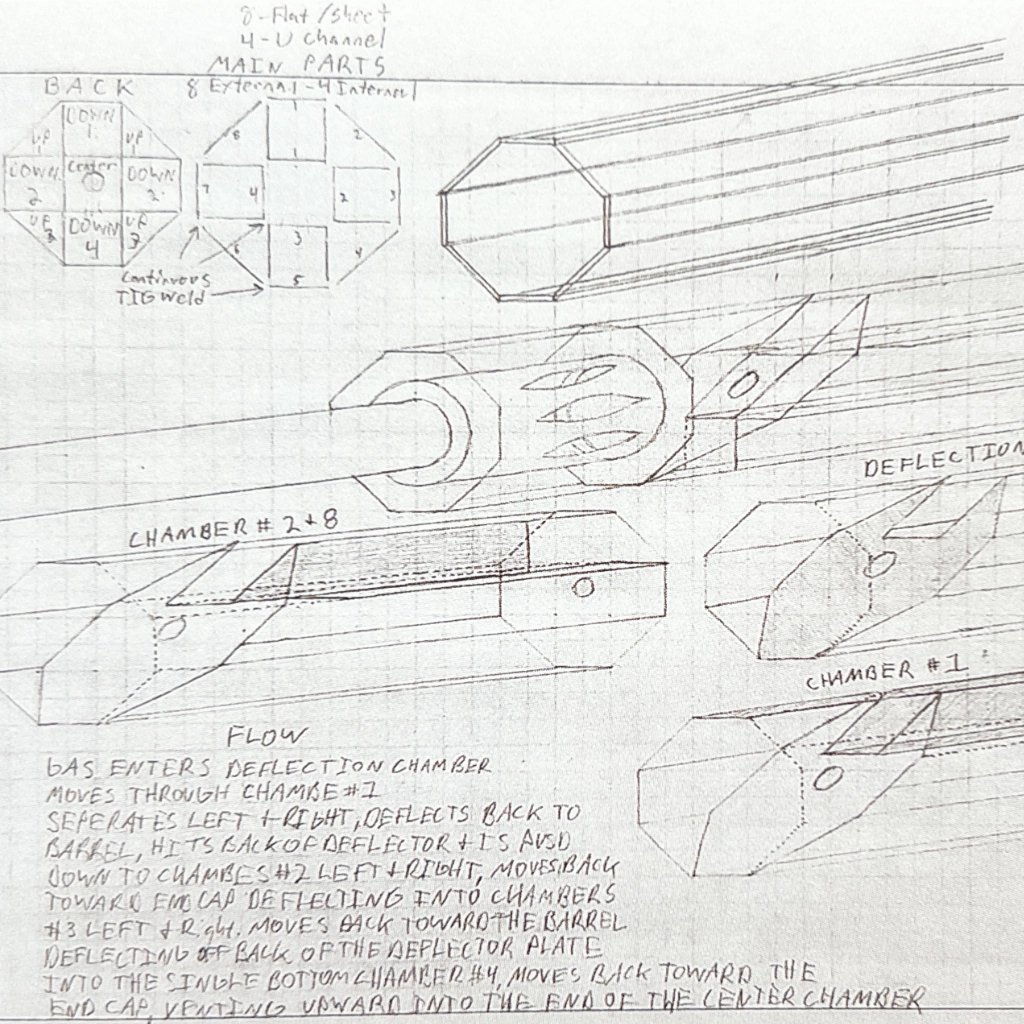 8-Flat/sheet
4-U Channel
MAIN PARTS
8 External-4 Internal
BACK
DOWN
1
UP
UP
DOWN
2
Center
DOWN
2
UP
3
DOWN
4
UP
3
1
8
2
7
4
2
3
6
3
4
5
Continuous
TIG Weld
DEFLECTION
CHAMBER # 2+8
CHAMBER #1
FLOW
GAS ENTERS DEFLECTION CHAMBER
MOVES THROUGH CHAMBE#1
SEPERATES LEFT + RIGHT, DEFLECTS BACK TO
BARREL, HITS BACK OF DEFLECTOR + IS
DOWN TO CHAMBES #2 LEFT + RIGHT, MOVES BACK
TOWARD END CAP DEFLECTING INTO CHAMBERS
#3 LEFT + Right. MOVES BACK TOWARD THE BARREL
DEFLECTING OFF BACK OF THE DEFLECTOR PLATE
INTO THE SINGLE BOTTOM CHAMBER #4, MOVES BACK TOWARD THE
END CAP, VENTING UPWARD INTO THE END OF THE CENTER CHAMBER